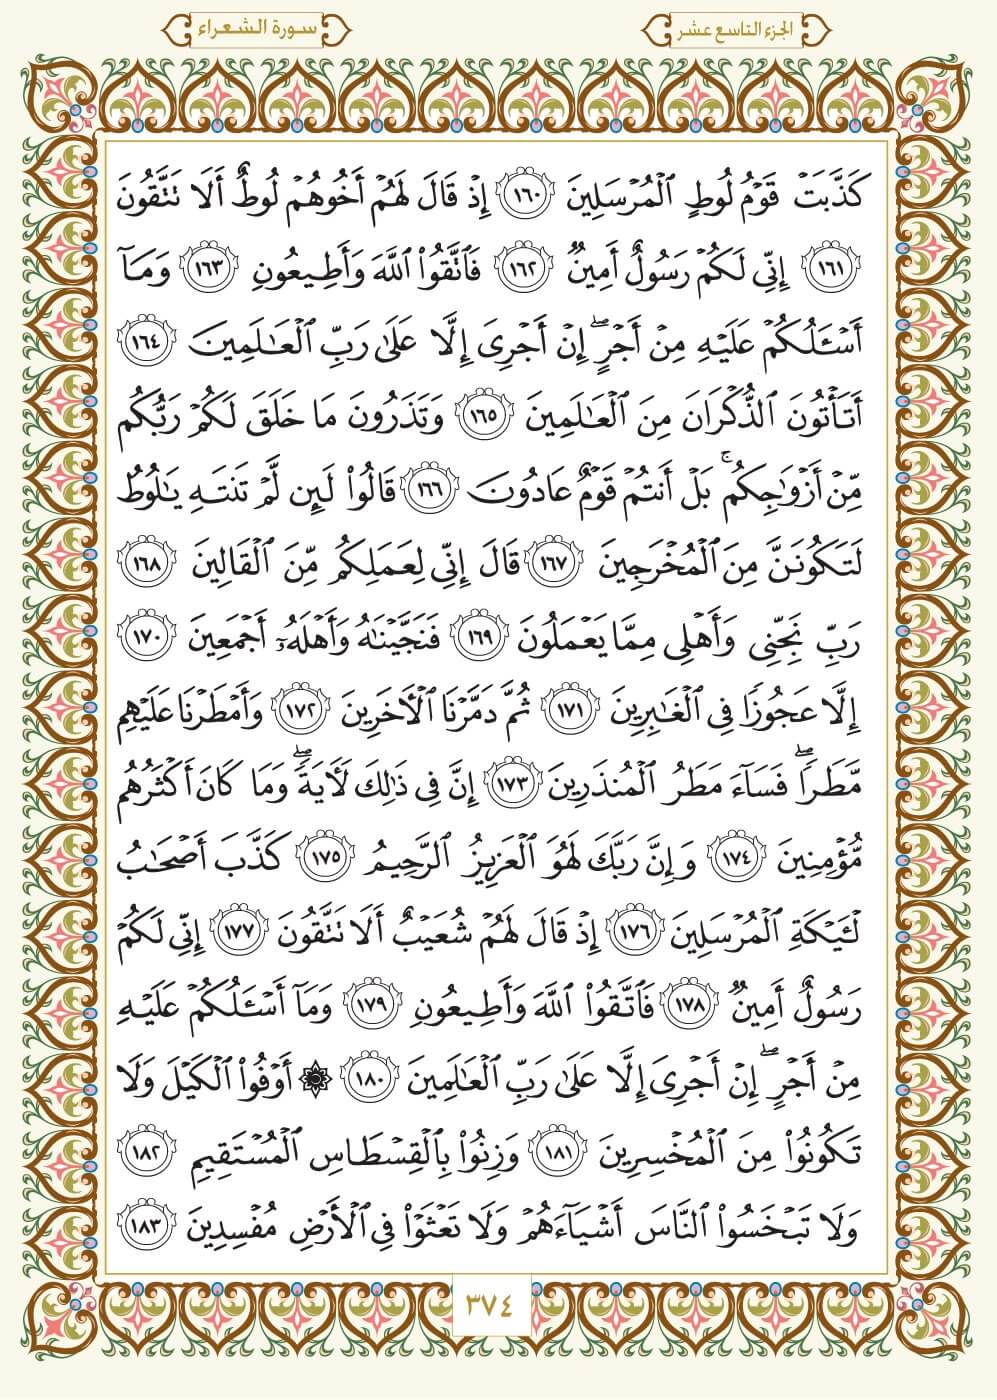 الجزء التاسع عشر
سورة الشعراء
كَذَّبَتۡ قَوۡمُ لُوطٍ ٱلۡمُرۡسَلِينَ ١٦٠ إِذۡ قَالَ لَهُمۡ أَخُوهُمۡ لُوطٌ أَلَا تَتَّقُونَ
١٦١ إِنِّي لَكُمۡ رَسُولٌ أَمِينٌ ١٦٢ فَٱتَّقُواْ ٱللَّهَ وَأَطِيعُونِ ١٦٣ وَمَآ
أَسۡـَٔلُكُمۡ عَلَيۡهِ مِنۡ أَجۡرٍۖ إِنۡ أَجۡرِيَ إِلَّا عَلَىٰ رَبِّ ٱلۡعَٰلَمِينَ ١٦٤
أَتَأۡتُونَ ٱلذُّكۡرَانَ مِنَ ٱلۡعَٰلَمِينَ ١٦٥ وَتَذَرُونَ مَا خَلَقَ لَكُمۡ رَبُّكُم
مِّنۡ أَزۡوَٰجِكُمۚ بَلۡ أَنتُمۡ قَوۡمٌ عَادُونَ ١٦٦ قَالُواْ لَئِن لَّمۡ تَنتَهِ يَٰلُوطُ
لَتَكُونَنَّ مِنَ ٱلۡمُخۡرَجِينَ ١٦٧ قَالَ إِنِّي لِعَمَلِكُم مِّنَ ٱلۡقَالِينَ ١٦٨
رَبِّ نَجِّنِي وَأَهۡلِي مِمَّا يَعۡمَلُونَ ١٦٩ فَنَجَّيۡنَٰهُ وَأَهۡلَهُۥٓ أَجۡمَعِينَ ١٧٠
إِلَّا عَجُوزًا فِي ٱلۡغَٰبِرِينَ ١٧١ ثُمَّ دَمَّرۡنَا ٱلۡأٓخَرِينَ ١٧٢ وَأَمۡطَرۡنَا عَلَيۡهِم
مَّطَرًاۖ فَسَآءَ مَطَرُ ٱلۡمُنذَرِينَ ١٧٣ إِنَّ فِي ذَٰلِكَ لَأٓيَةًۖ وَمَا كَانَ أَكۡثَرُهُم
مُّؤۡمِنِينَ ١٧٤ وَإِنَّ رَبَّكَ لَهُوَ ٱلۡعَزِيزُ ٱلرَّحِيمُ ١٧٥ كَذَّبَ أَصۡحَٰبُ
لۡـَٔيۡكَةِ ٱلۡمُرۡسَلِينَ ١٧٦ إِذۡ قَالَ لَهُمۡ شُعَيۡبٌ أَلَا تَتَّقُونَ ١٧٧ إِنِّي لَكُمۡ
رَسُولٌ أَمِينٌ ١٧٨ فَٱتَّقُواْ ٱللَّهَ وَأَطِيعُونِ ١٧٩ وَمَآ أَسۡـَٔلُكُمۡ عَلَيۡهِ
مِنۡ أَجۡرٍۖ إِنۡ أَجۡرِيَ إِلَّا عَلَىٰ رَبِّ ٱلۡعَٰلَمِينَ ١٨٠ ۞ أَوۡفُواْ ٱلۡكَيۡلَ وَلَا
تَكُونُواْ مِنَ ٱلۡمُخۡسِرِينَ ١٨١ وَزِنُواْ بِٱلۡقِسۡطَاسِ ٱلۡمُسۡتَقِيمِ ١٨٢
وَلَا تَبۡخَسُواْ ٱلنَّاسَ أَشۡيَآءَهُمۡ وَلَا تَعۡثَوۡاْ فِي ٱلۡأَرۡضِ مُفۡسِدِينَ ١٨٣
٣٧٤